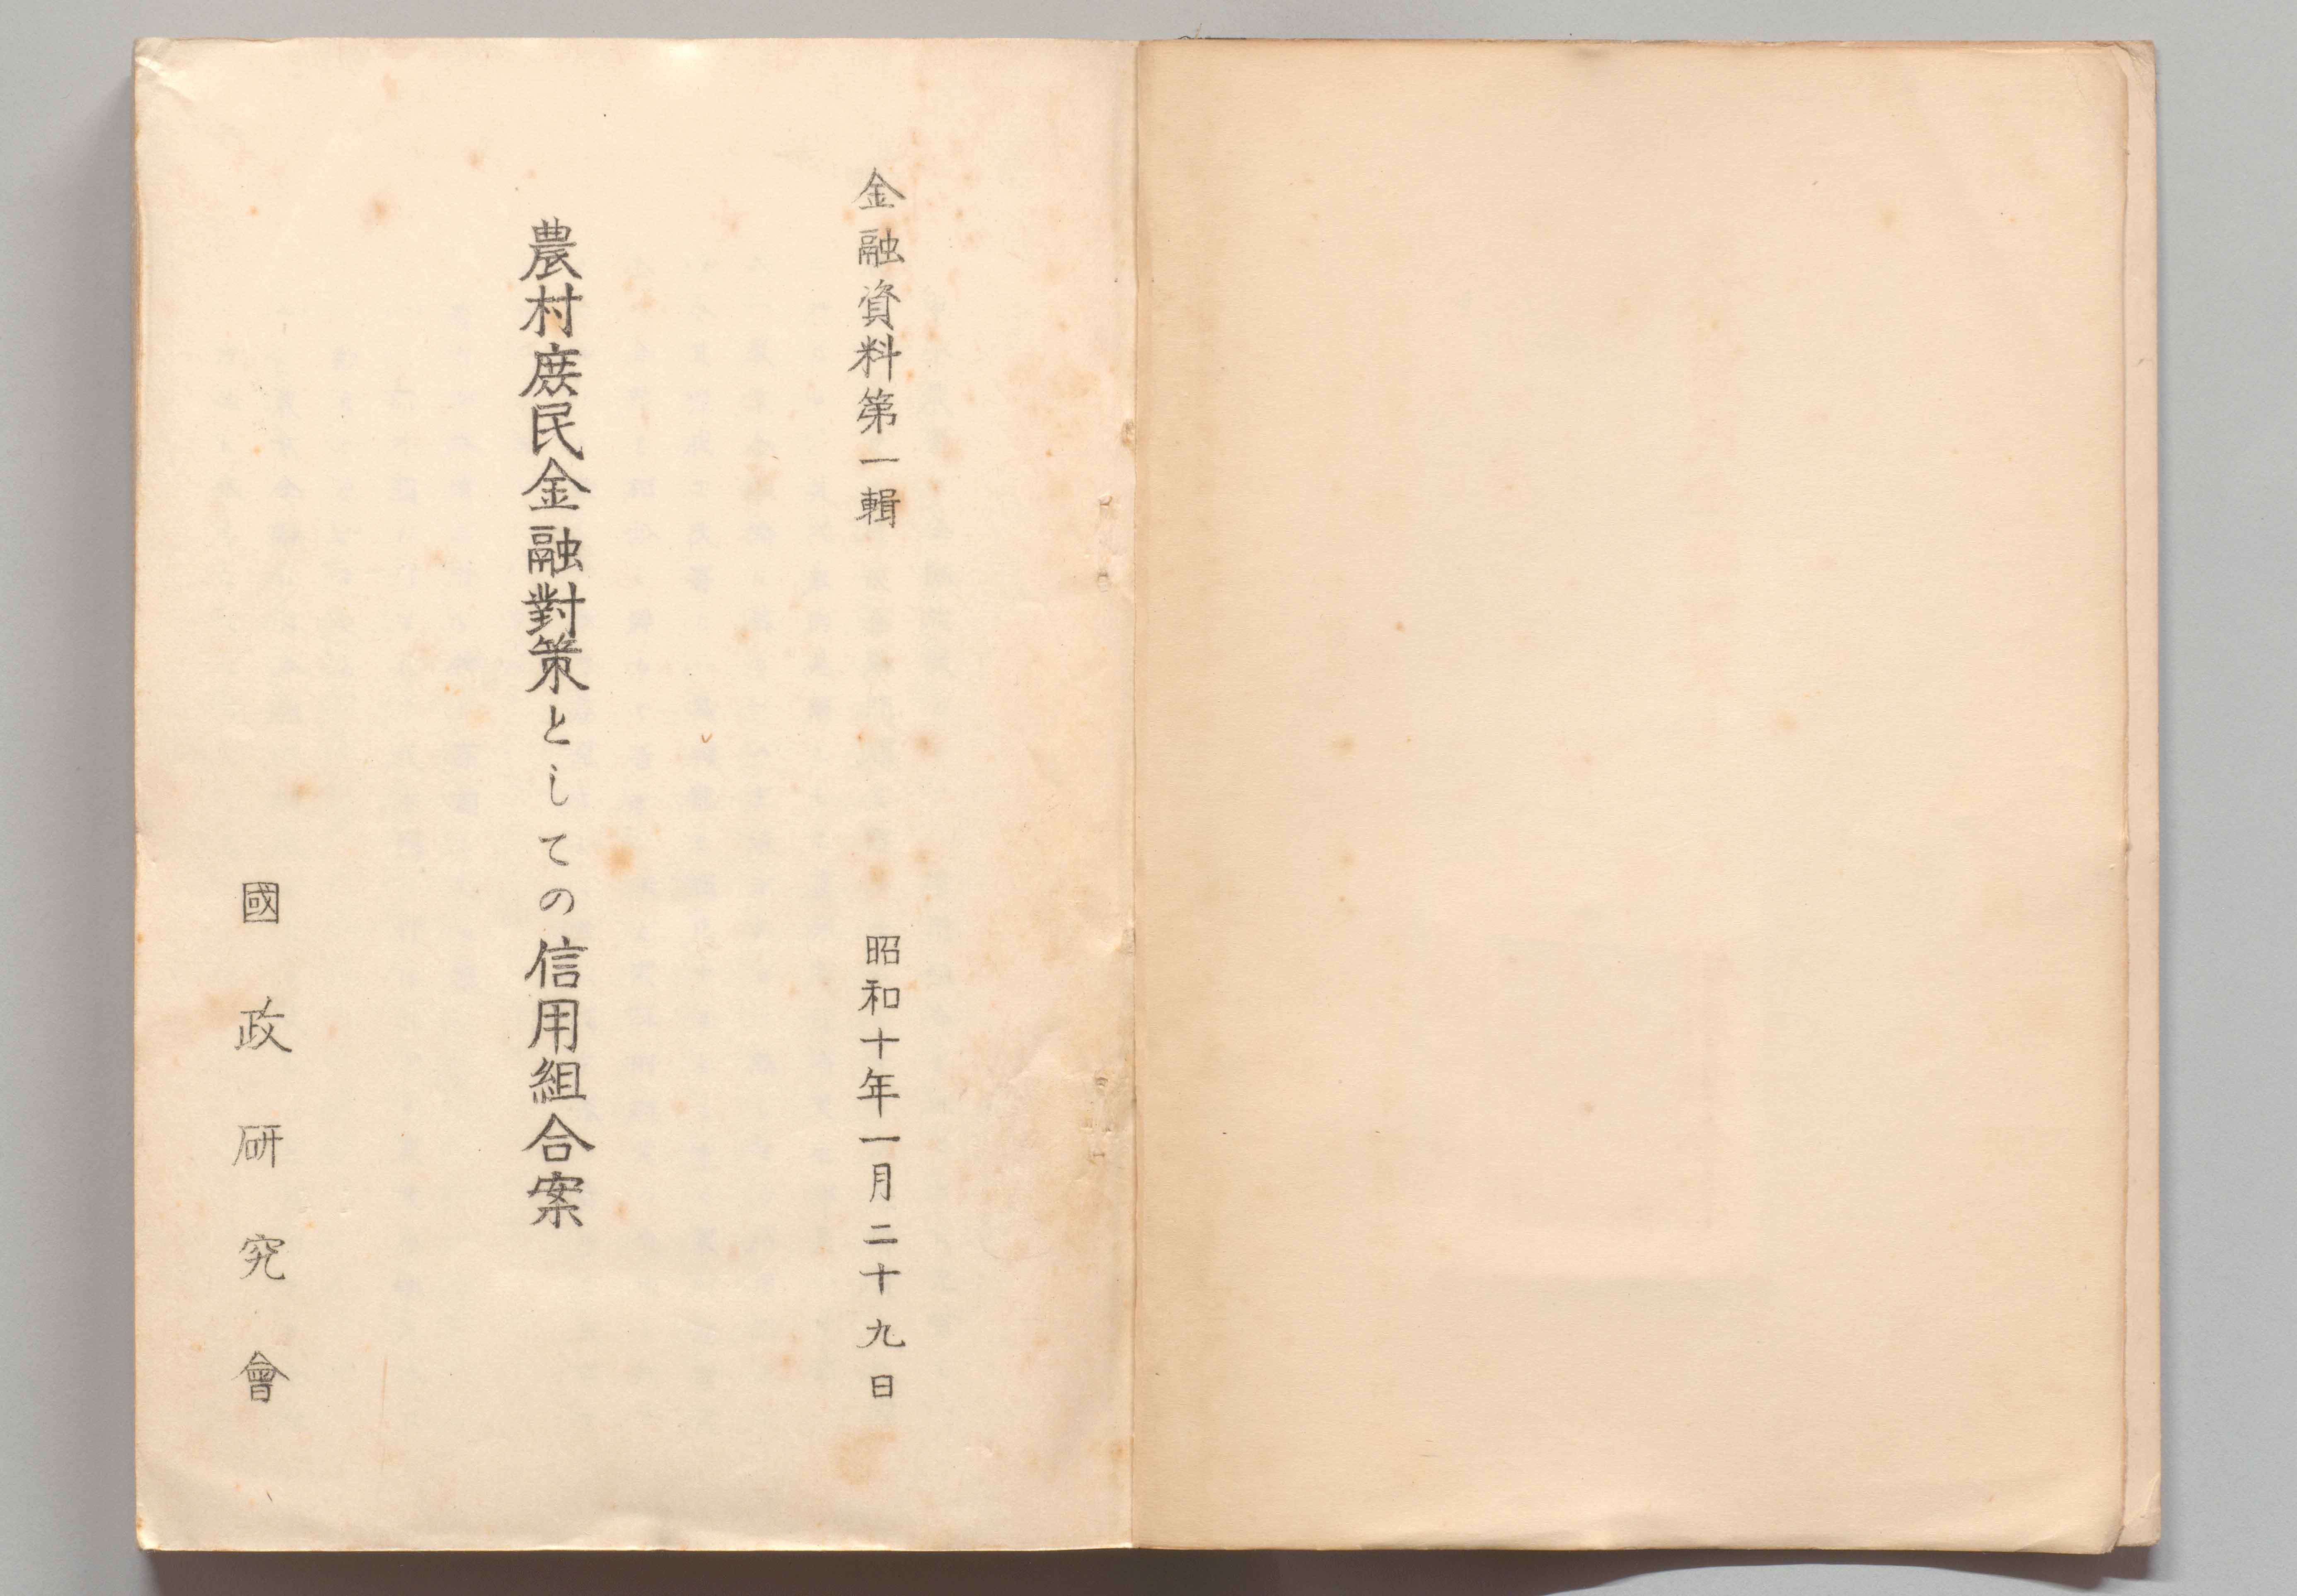 金融資料第一輯　昭和十年一月二十九日
農村庶民金融對策としての信用組合案
國政研究會